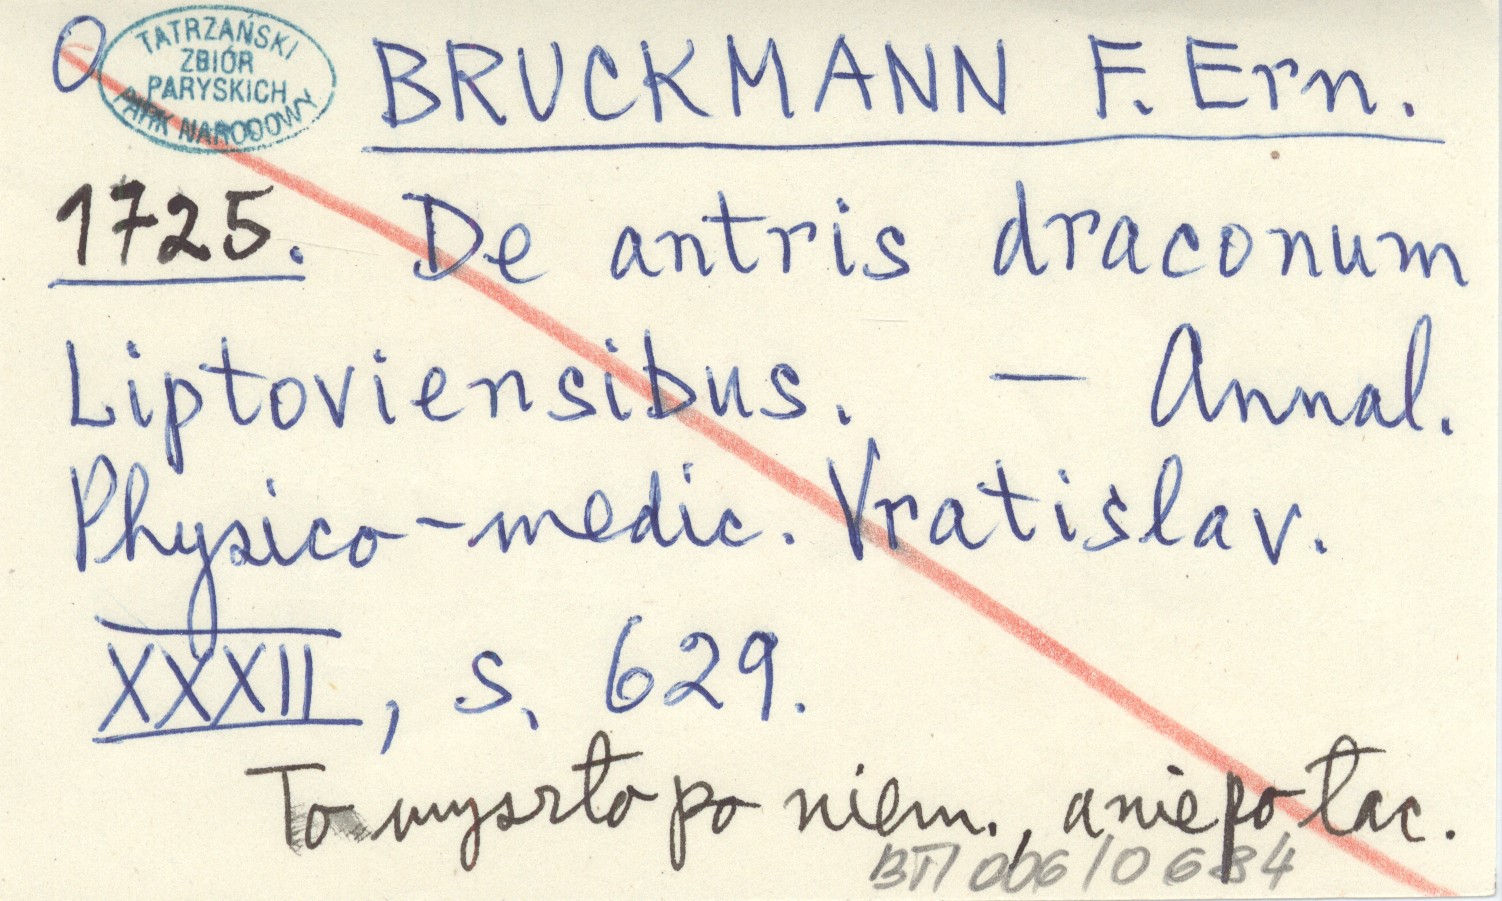 O
TATRZAŃSKI
ZBIÓR
PARYSKICH
PARK NARODOWY
BRUCKMANN F. Ern.
1725. De antris draconum
Liptoviensibus. — Annal.
Physico-medic. Vratislav.
XXXII, s. 629.
To wyszło po niem., a nie po łac.
BTP/006/0684